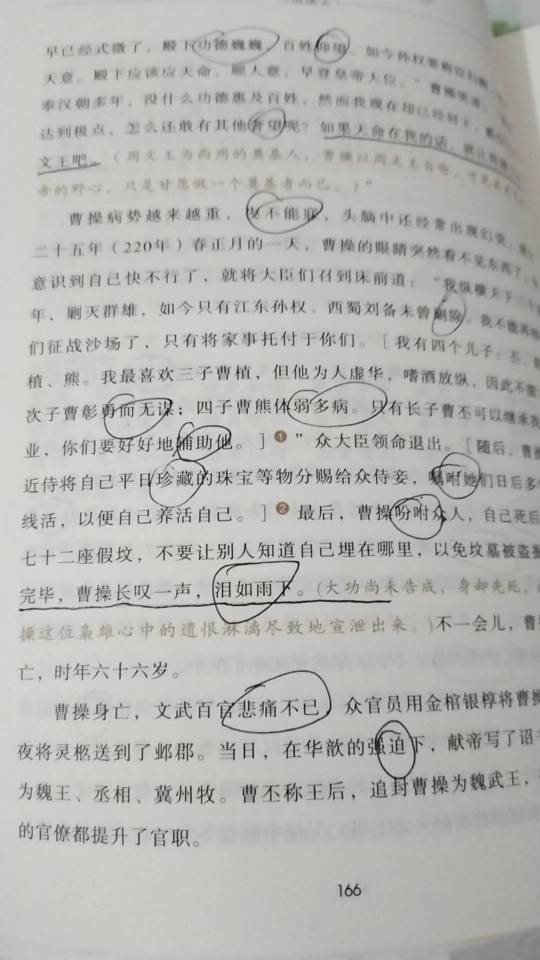 早已经式微了，殿下功德巍巍，百姓仰望。如今孙权要称臣
天意。殿下应该应天命，顺人意，早登皇帝大位。”曹操笑道
秦汉朝多年，没什么功德惠及百姓，然而我现在却已经封王
达到极点，怎么还敢有其他奢望呢？如果天命在我的话，就让我做
文王吧。（周文王为西周的奠基人，曹操以周文王自命，可见其
帝的野心，只是甘愿做一个奠基者而已。）”
曹操病势越来越重，夜不能寐，头脑中还经常出现幻觉。
二十五年（220年）春正月的一天，曹操的眼睛突然看不见东西了。
意识到自己快不行了，就将大臣们召到床前道：“我纵横天下三十
年，剿灭群雄，如今只有江东孙权、西蜀刘备未曾剿除。我不能再
们征战沙场了，只有将家事托付于你们。［我有四个儿子：丕、
植、熊。我最喜欢三子曹植，但他为人虚华，嗜酒放纵，因此不
次子曹彰勇而无谋；四子曹熊体弱多病。只有长子曹丕可以继承我
业，你们要好好地辅助他。］❶”众大臣领命退出。［随后，曹操
近侍将自己平日珍藏的珠宝等物分赐给众侍妾，嘱咐她们日后多
线活，以便自己养活自己。］❷最后，曹操吩咐众人，自己死后
七十二座假坟，不要让别人知道自己埋在哪里，以免坟墓被盗掘
完毕，曹操长叹一声，泪如雨下。（大功尚未告成，身却先死，
操这位枭雄心中的遗恨淋漓尽致地宣泄出来。）不一会儿，曹操
亡，时年六十六岁。
曹操身亡，文武百官悲痛不已，众官员用金棺银椁将曹操
夜将灵柩送到了邺郡。当日，在华歆的强迫下，献帝写了诏书
为魏王、丞相、冀州牧。曹丕称王后，追封曹操为魏武王，
的官僚都提升了官职。
166